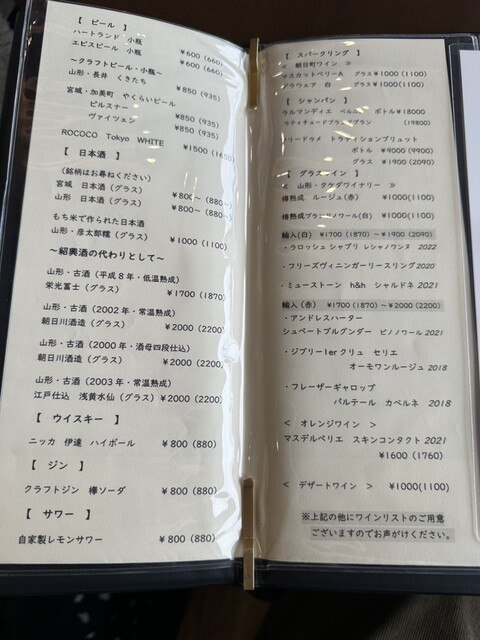 【 ビール 】
ハートランド 小瓶 ¥600(660)
エビスビール 小瓶 ¥600(660)
～クラフトビール・小瓶～
山形・長井 くきたち ¥850(935)
宮城・加美町 やくらいビール
ピルスナー ¥850(935)
ヴァイツェン ¥850(935)
ROCOCO Tokyo WHITE ¥1500(1650)
【 日本酒 】
(銘柄はお尋ねください)
宮城 日本酒(グラス) ¥800～(880～)
山形 日本酒(グラス) ¥800～(880～)
もち米で作られた日本酒
山形・彦太郎糯(グラス) ¥1000(1100)
～紹興酒の代わりとして～
山形・古酒(平成8年・低温熟成)
栄光冨士(グラス) ¥1700(1870)
山形・古酒(2002年・常温熟成)
朝日川酒造(グラス) ¥2000(2200)
山形・古酒(2000年・酒母四段仕込)
朝日川酒造(グラス) ¥2000(2200)
山形・古酒(2003年・常温熟成)
江戸仕込 浅黄水仙(グラス) ¥2000(2200)
【 ウイスキー 】
ニッカ 伊達 ハイボール ¥800(880)
【 ジン 】
クラフトジン 欅ソーダ ¥800(880)
【 サワー 】
自家製レモンサワー ¥800(880)
【 スパークリング 】
≪ 朝日町ワイン ≫
マスカットベリーA グラス¥1000(1100)
デラウェア 白 グラス¥1000(1100)
【 シャンパン 】
ラルマンディエ ベルニエ ボトル¥18000
ラティチュードブランドブラン (19800)
トラディションブリュット
ボトル ¥9000(9900)
グラス ¥1900(2090)
【 グラスワイン 】
≪ 山形・タケダワイナリー ≫
樽熟成 ルージュ(赤) ¥1000(1100)
樽熟成ブランドノワール(白) ¥1000(1100)
輸入(白) ¥1700(1870)～¥1900(2090)
・ラロッシュ シャブリ レシャノワンヌ 2022
・フリーズヴィニンガーリースリング2020
・ミューストーン h&h シャルドネ 2021
輸入(赤) ¥1700(1870)～¥2000(2200)
・アンドレスハーター
シュペートブルグンダー ピノノワール2021
・ジブリー1erクリュ セリエ
オーモワンルージュ2018
・フレーザーギャロップ
パルテール カベルネ 2018
< オレンジワイン >
マスデルペリエ スキンコンタクト2021
¥1600(1760)
< デザートワイン > ¥1000(1100)
※上記の他にワインリストのご用意
ございますのでお声がけください。